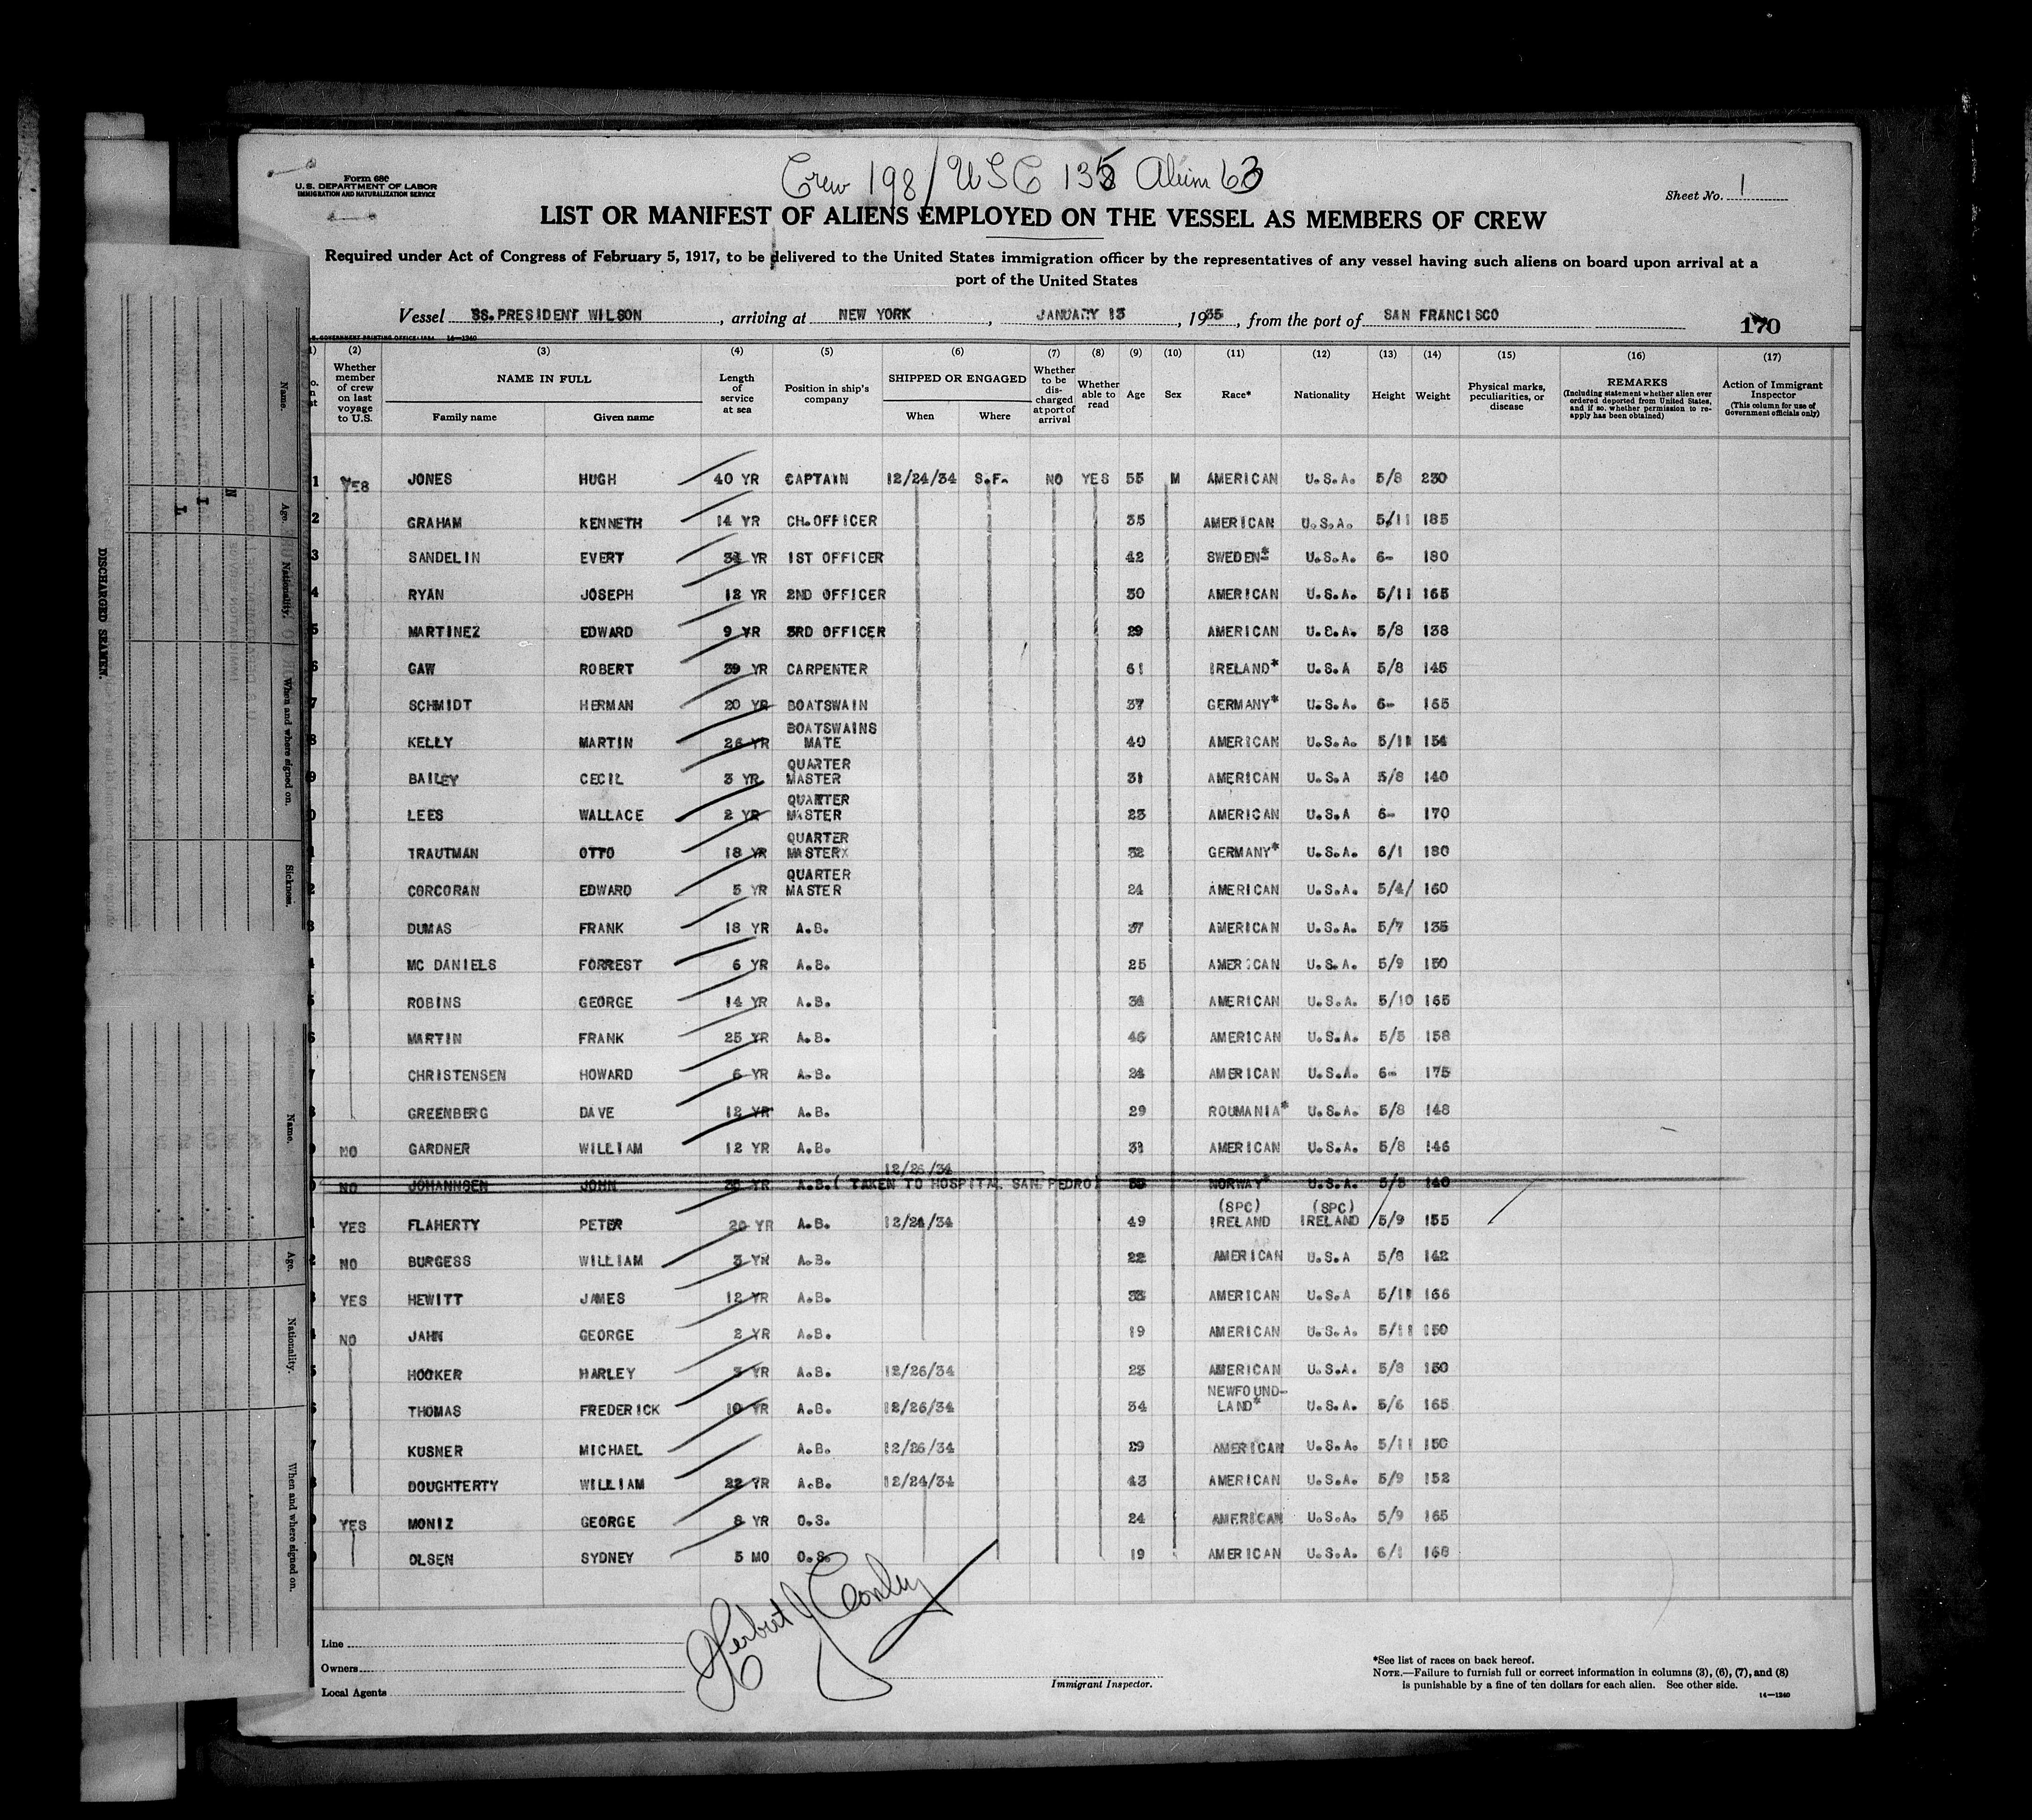 Crew 198 / USC 135 Alien 63
Form 680
U.S. DEPARTMENT OF LABOR
IMMIGRATION AND NATURALIZATION SERVICE
Sheet No. 1
LIST OR MANIFEST OF ALIENS EMPLOYED ON THE VESSEL AS MEMBERS OF CREW
Required under Act of Congress of February 5, 1917, to be delivered to the United States immigration officer by the representatives of any vessel having such aliens on board upon arrival at a
port of the United States
Vessel SS. PRESIDENT WILSON, arriving at NEW YORK, JANUARY 13, 1935, from the port of SAN FRANCISCO
170
U. S. GOVERNMENT PRINTING OFFICE: 1934 14—1240
(2) (3) (4) (5) (6) (7) (8) (9) (10) (11) (12) (13) (14) (15) (16) (17)
Whether member of crew on last voyage to U.S.
NAME IN FULL
Family name Given name
Length of service at sea
Position in ship's company
SHIPPED OR ENGAGED
When Where
Whether to be discharged at port of arrival
Whether able to read
Age Sex Race* Nationality Height Weight
Physical marks, peculiarities, or disease
REMARKS
(Including statement whether alien ever ordered deported from United States, and if so, whether permission to reapply has been obtained)
Action of Immigrant Inspector
(This column for use of Government officials only)
1 YES JONES HUGH 40 YR CAPTAIN 12/24/34 S.F. NO YES 55 M AMERICAN U.S.A. 5/8 230
2 GRAHAM KENNETH 14 YR CH.OFFICER 35 AMERICAN U.S.A. 5/11 185
3 SANDELIN EVERT 34 YR 1ST OFFICER 42 SWEDEN* U.S.A. 6- 180
4 RYAN JOSEPH 12 YR 2ND OFFICER 30 AMERICAN U.S.A. 5/11 165
5 MARTINEZ EDWARD 9 YR 3RD OFFICER 29 AMERICAN U.S.A. 5/8 138
6 GAW ROBERT 39 YR CARPENTER 61 IRELAND* U.S.A 5/8 145
7 SCHMIDT HERMAN 20 YR BOATSWAIN 37 GERMANY* U.S.A. 6- 165
8 KELLY MARTIN 26 YR BOATSWAINS MATE 40 AMERICAN U.S.A. 5/11 154
9 BAILEY CECIL 3 YR QUARTER MASTER 31 AMERICAN U.S.A 5/8 140
0 LEES WALLACE 2 YR QUARTER MASTER 23 AMERICAN U.S.A 6- 170
1 TRAUTMAN OTTO 18 YR QUARTER MASTER 32 GERMANY* U.S.A. 6/1 180
2 CORCORAN EDWARD 5 YR QUARTER MASTER 24 AMERICAN U.S.A. 5/4 160
3 DUMAS FRANK 18 YR A.B. 37 AMERICAN U.S.A. 5/7 135
4 MC DANIELS FORREST 6 YR A.B. 25 AMERICAN U.S.A. 5/9 150
5 ROBINS GEORGE 14 YR A.B. 34 AMERICAN U.S.A. 5/10 165
6 MARTIN FRANK 25 YR A.B. 46 AMERICAN U.S.A. 5/5 158
7 CHRISTENSEN HOWARD 6 YR A.B. 24 AMERICAN U.S.A. 6- 175
8 GREENBERG DAVE 12 YR A.B. 29 ROUMANIA* U.S.A. 5/8 148
9 NO GARDNER WILLIAM 12 YR A.B. 31 AMERICAN U.S.A. 5/8 146
12/26/34
0 NO JOHANNSEN JOHN 35 YR A.B.( TAKEN TO HOSPITAL SAN PEDRO) NORWAY* U.S.A. 5/5 140
1 YES FLAHERTY PETER 20 YR A.B. 12/24/34 49 (SPC) IRELAND (SPC) IRELAND 5/9 155
2 NO BURGESS WILLIAM 3 YR A.B. 22 AMERICAN U.S.A 5/8 142
3 YES HEWITT JAMES 12 YR A.B. 38 AMERICAN U.S.A 5/11 166
4 NO JAHN GEORGE 2 YR A.B. 19 AMERICAN U.S.A. 5/11 150
5 HOOKER HARLEY 3 YR A.B. 12/26/34 23 AMERICAN U.S.A. 5/8 150
6 THOMAS FREDERICK 10 YR A.B. 12/26/34 34 NEWFOUND-LAND* U.S.A. 5/6 165
7 KUSNER MICHAEL A.B. 12/26/34 29 AMERICAN U.S.A. 5/11 150
8 DOUGHTERTY WILLIAM 22 YR A.B. 12/24/34 43 AMERICAN U.S.A. 5/9 152
9 YES MONIZ GEORGE 8 YR O.S. 24 AMERICAN U.S.A. 5/9 165
0 OLSEN SYDNEY 5 MO O.S. 19 AMERICAN U.S.A. 6/1 168
Herbert J Conley
Line
Owners
Local Agents
Immigrant Inspector.
*See list of races on back hereof.
NOTE.—Failure to furnish full or correct information in columns (3), (6), (7), and (8)
is punishable by a fine of ten dollars for each alien. See other side.
14—1240
DISCHARGED SEAMEN.
Name.
Age.
Nationality.
When and where signed on.
Sickness.
Name.
Age.
Nationality.
When and where signed on.